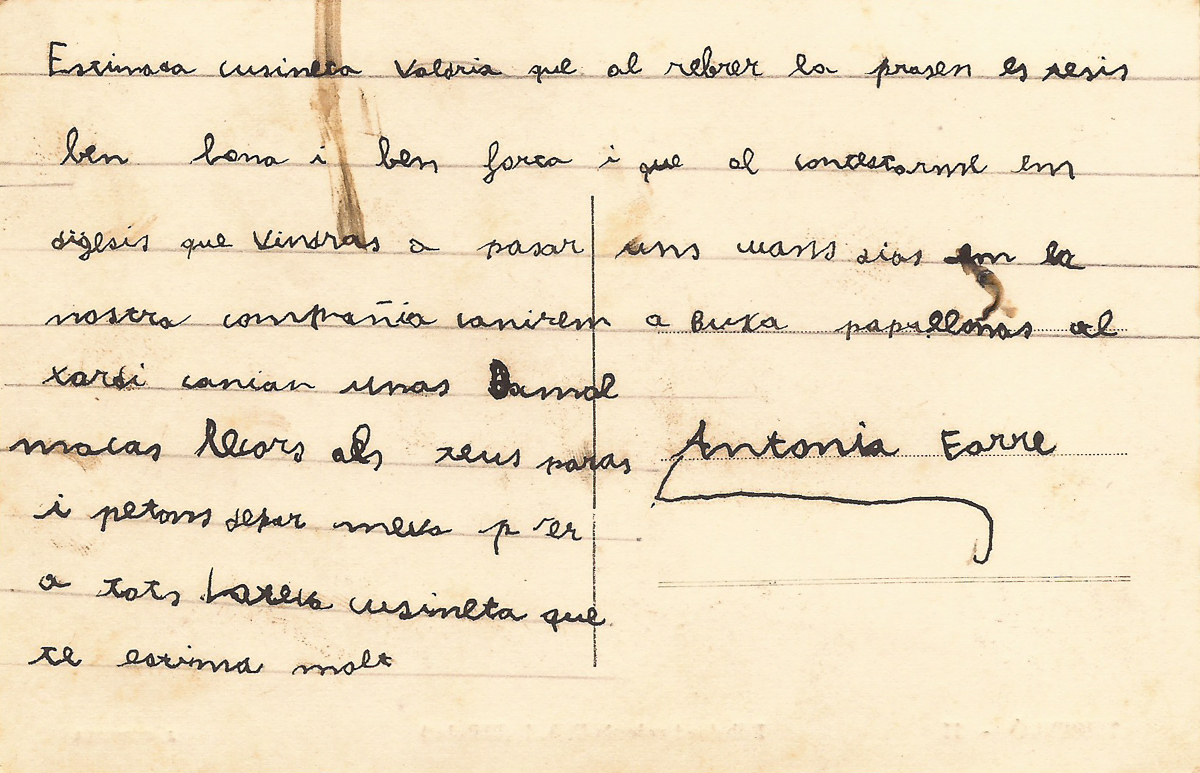 Estimada cusineta Valdria que al rebrer la prasen es tesis
ben bona i ben forta i que al contestarme em
digesis que vindras a pasar uns cuans dias em la
nostra compañia canirem a Buxa papellonas al
xardi canian unas
macas llcors als teus paras
i petons depar meva p er
a tots Lateva cusineta que
te estima molt
Antonia Farre